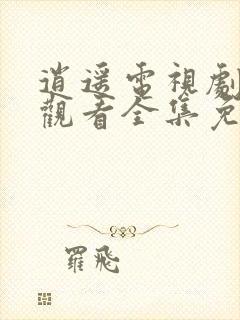 逍遥電視劇
觀看全集免
羅飛